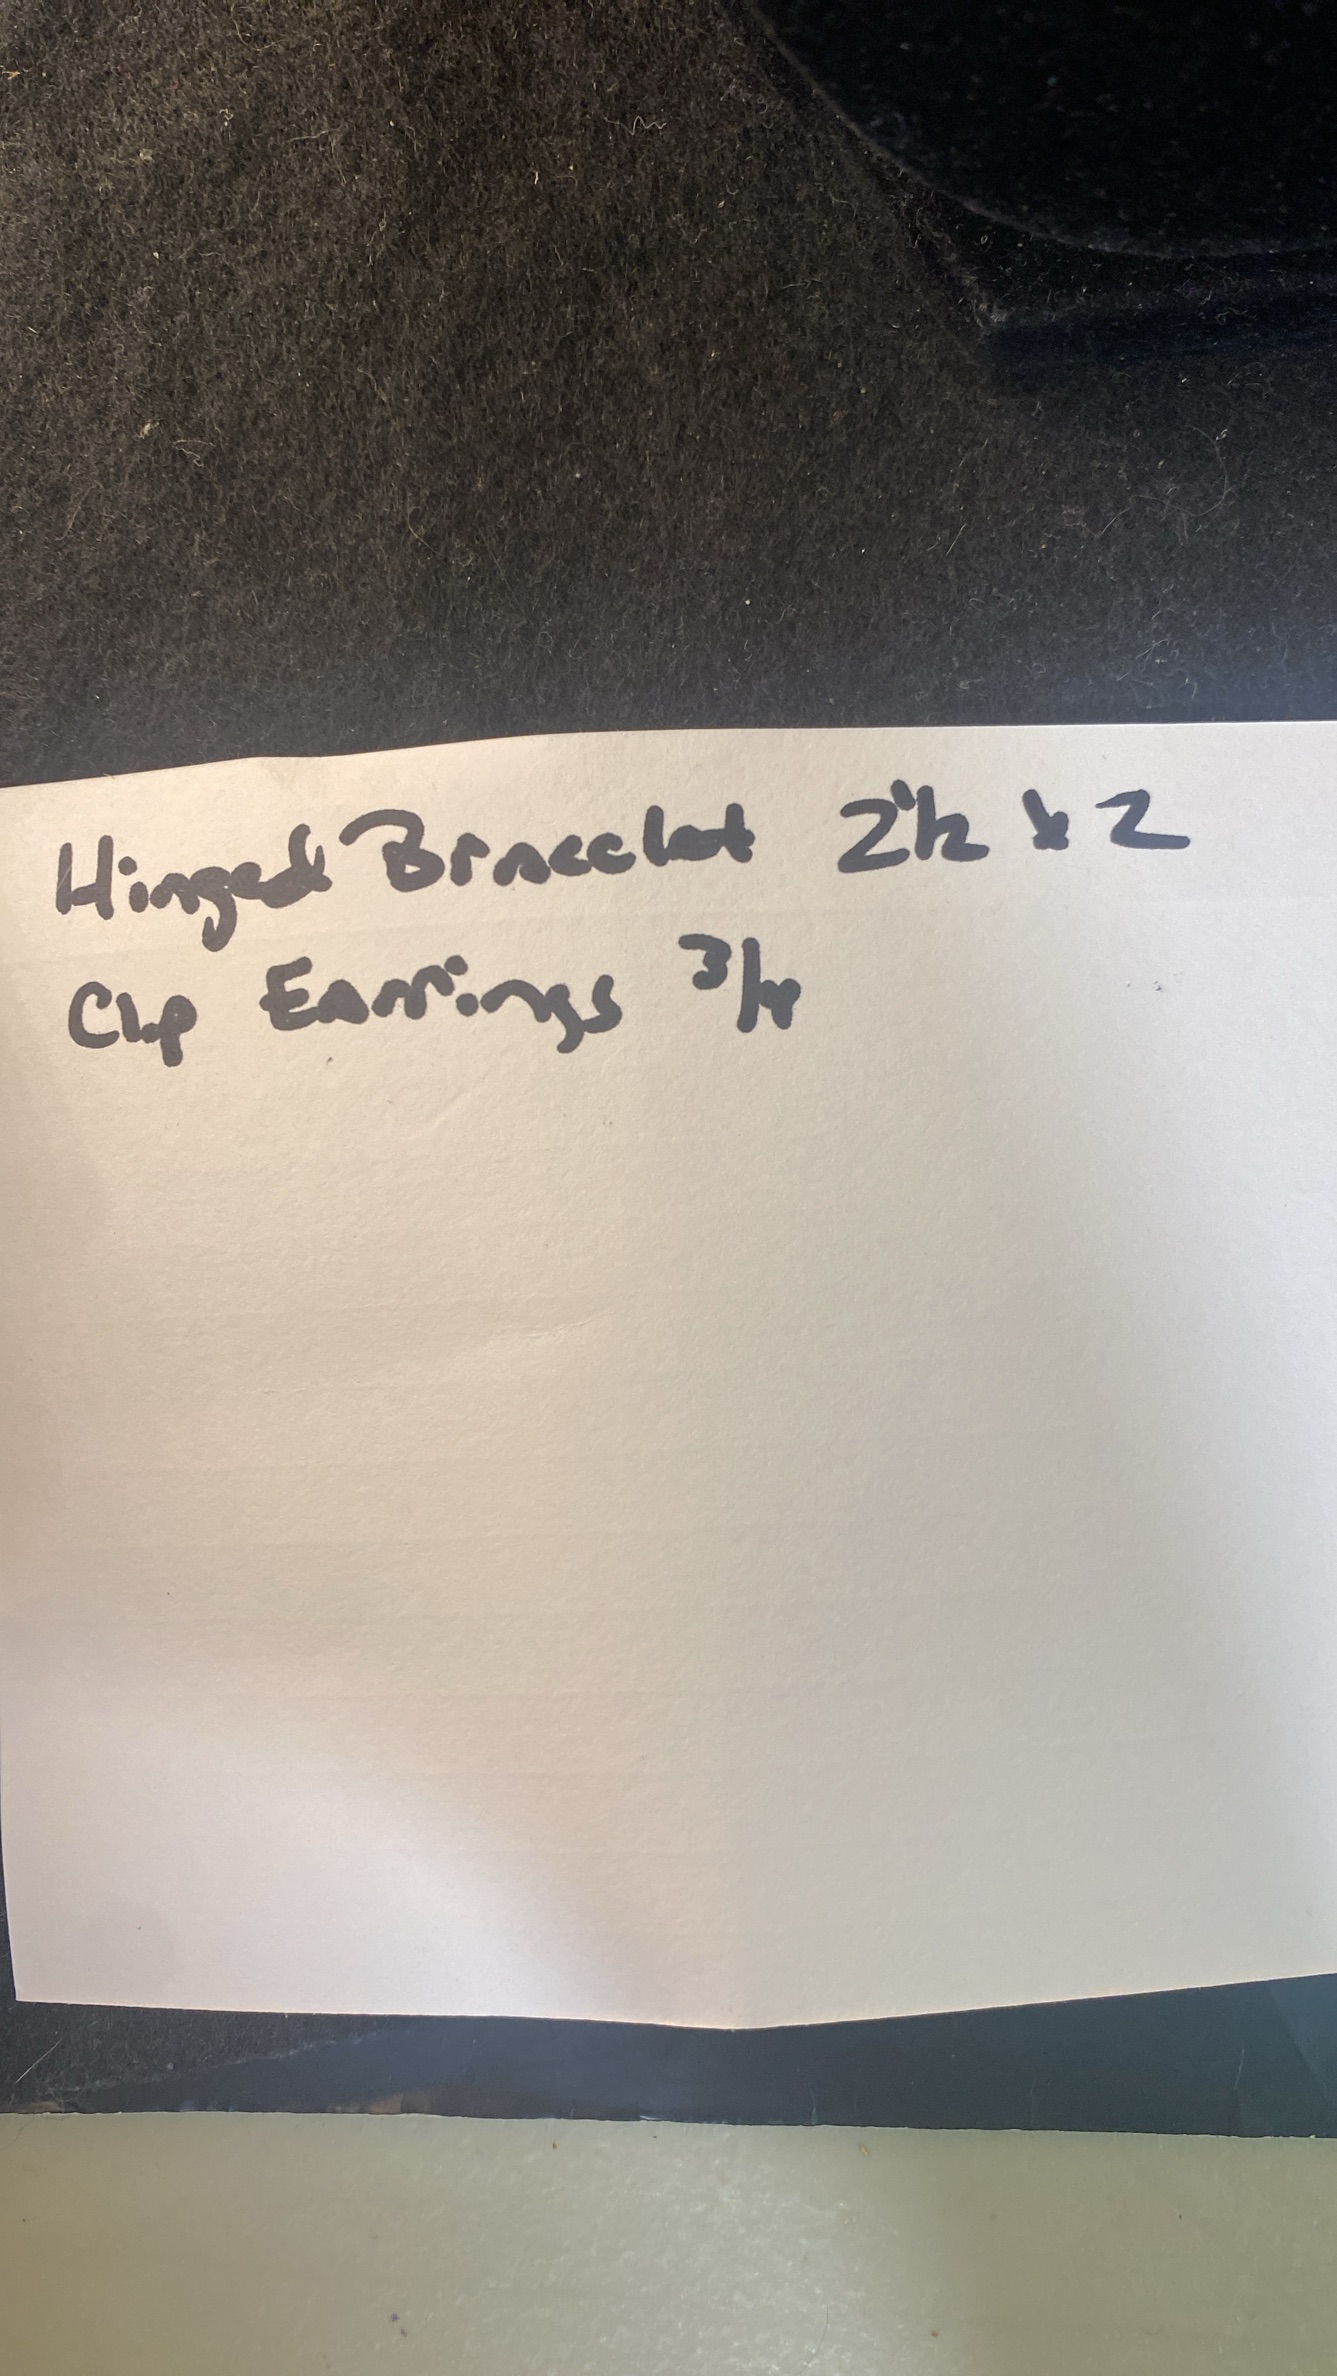 Hinged Bracelet 2 1/2 x 2
Clip Earrings 3/4